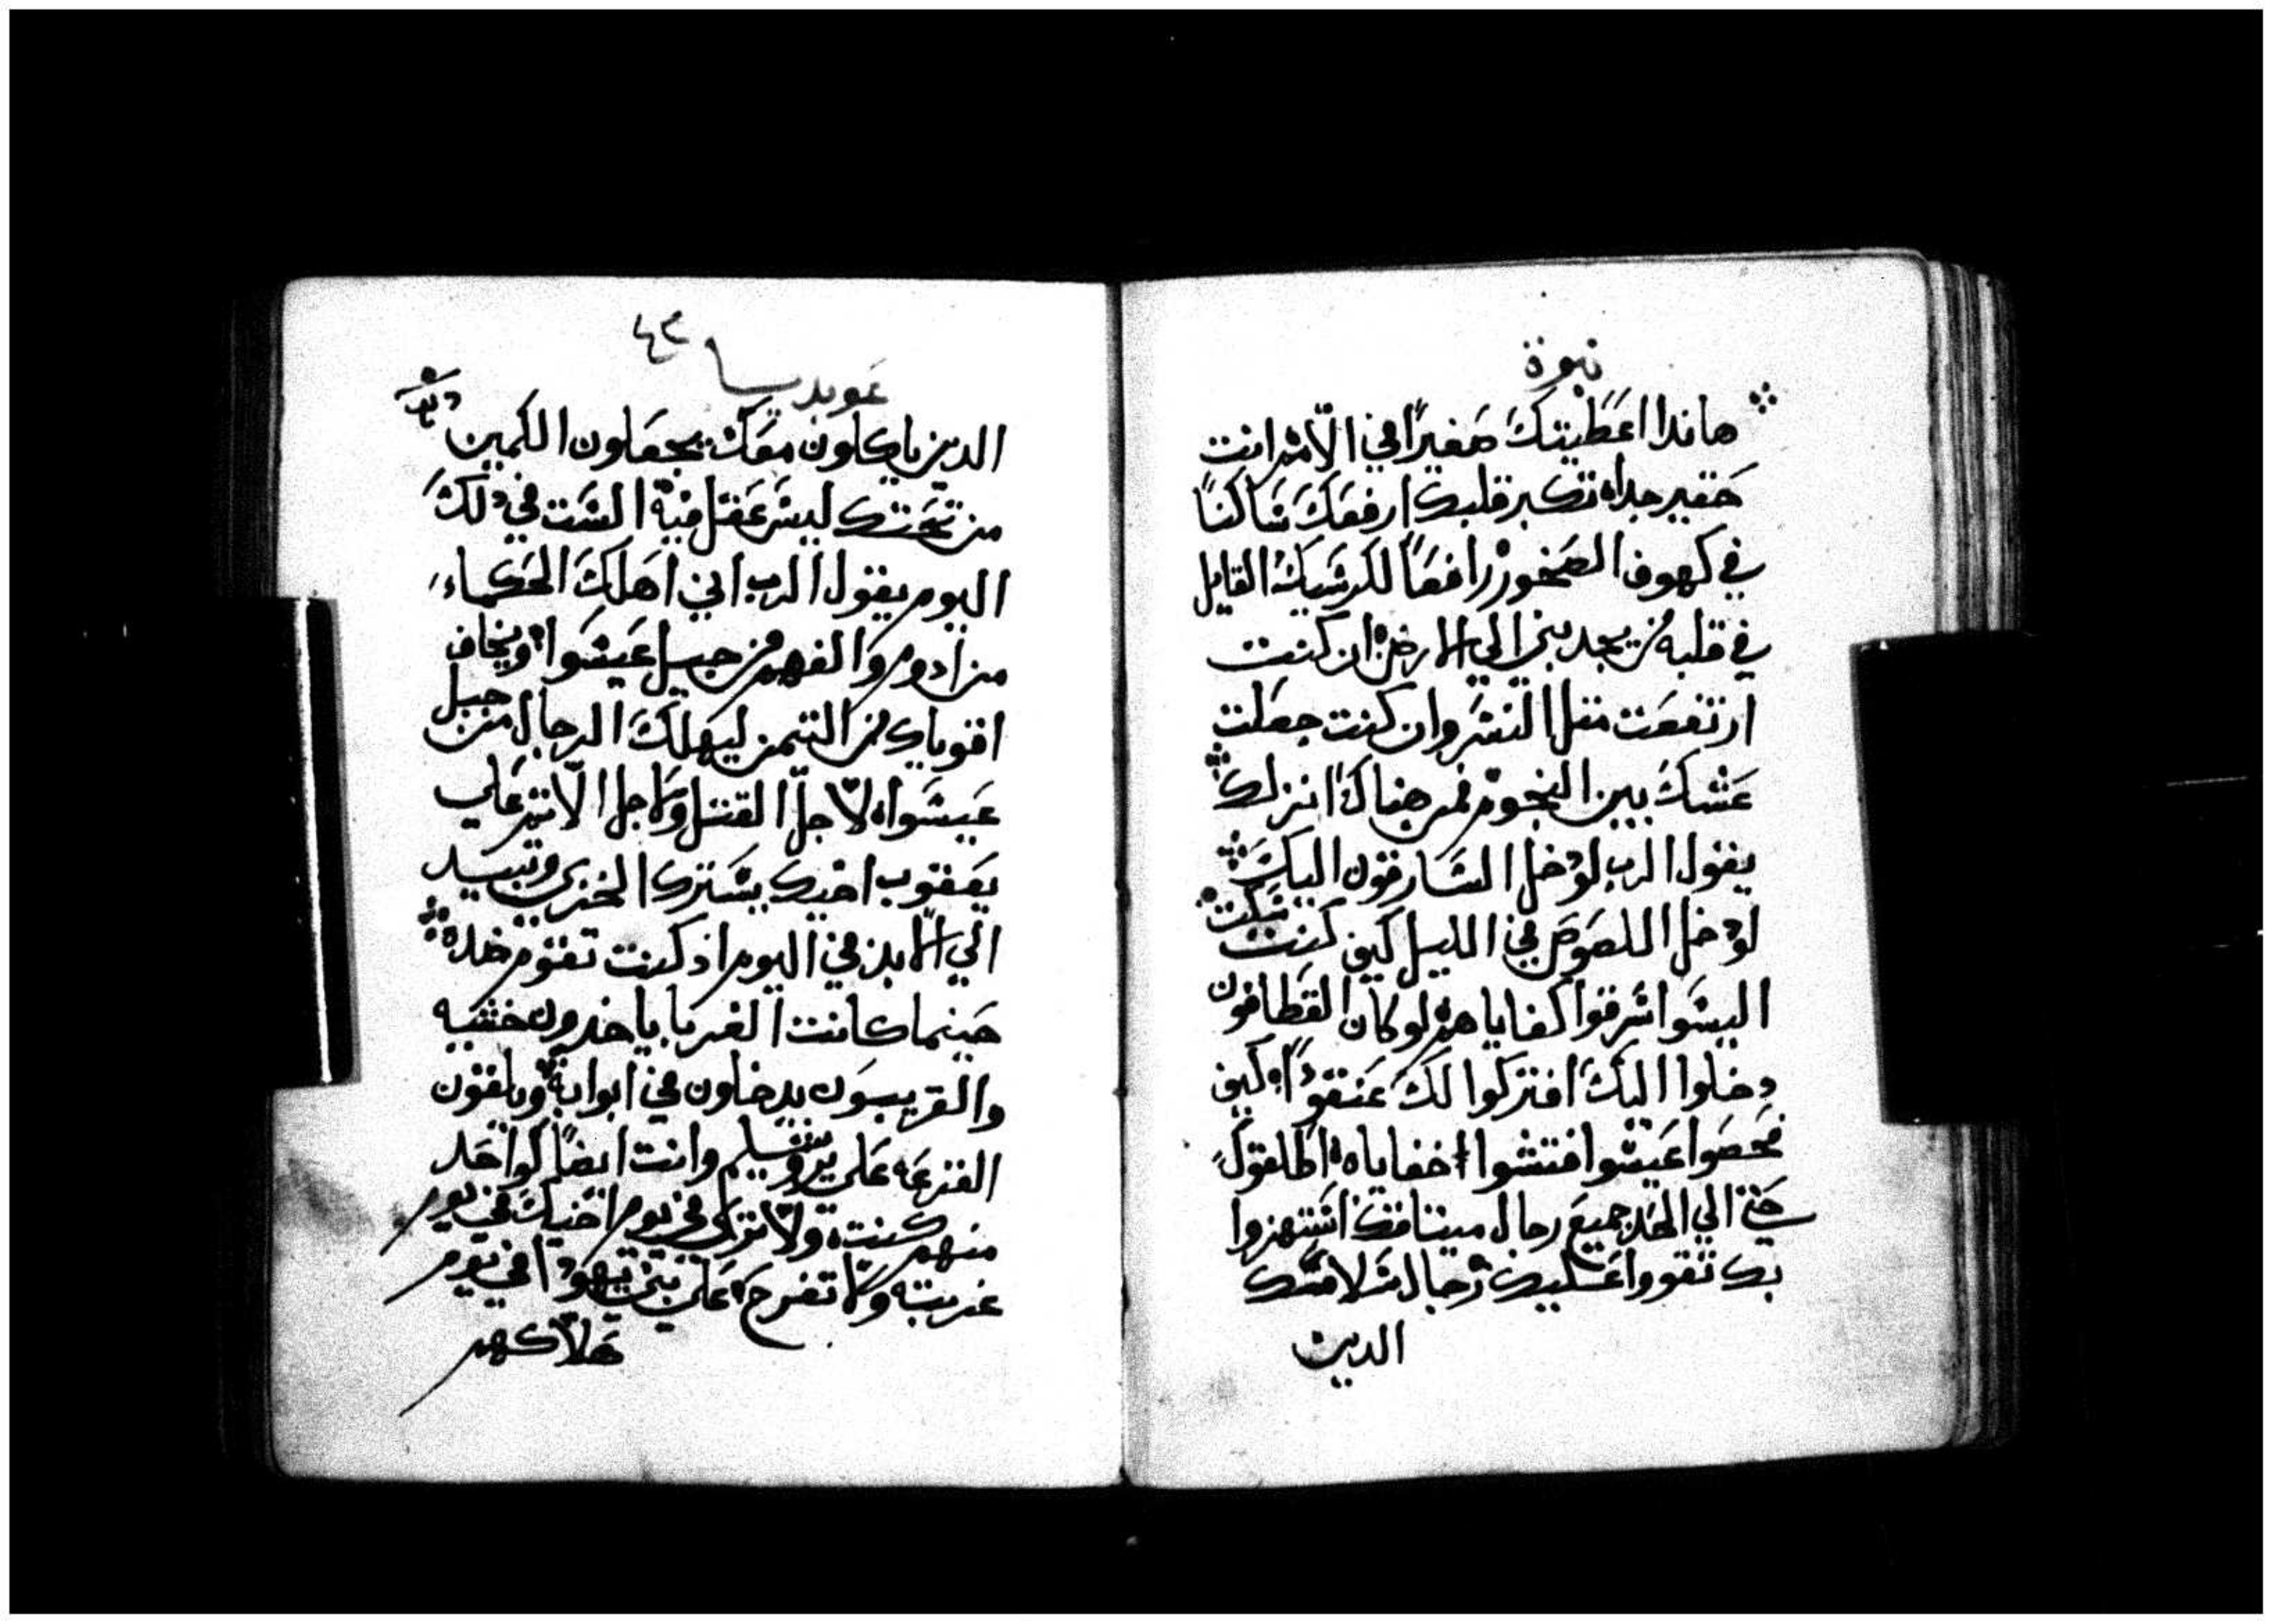 نبوة
هاندا اعطيتك صغيرًا في الامم انت
حقير جداه تكبر قلبك ارفعك ساكنًا
في كهوف الصخور رافعًا لكرسيك القايل
في قلبه من يجدبني الي الارض ان كنت
ارتفعت متل النسر وان كنت جعلت
عشك بين النجوم فمن هناك انزلك
يقول الرب لو دخل السارقون اليك
لو دخل اللصوص في الليل كيف كنت سكت
اليسوا سرقوا كفاياهم لو كان القطافون
دخلوا اليك افتركوا لك عنقودًا كيف
فحصوا عيسوا فتشوا اخفاياه اطلقوك
حتي الي الحد جميع رجال ميتاقك استهزوا
بك تقووا عليك رجال سلامتك
الدين
عوبديا
٤٣
الدين ياكلون معك يجعلون الكمين
من تحتك ليس عقل فيه الست في دلك
اليوم يقول الرب اني اهلك الحكماء
من ادوم والفهم من جبل عيسوا ويخاف
اقوياك من التيمن ليهلك الرجال من جبل
عيسواه لاجل القتل ولاجل الاتم علي
يعقوب اخيك يسترك الخزي وتبيد
الي الابد في اليوم اد كنت تقوم ضده
حينما كانت الغربا ياخدون خشبه
والقريبون يدخلون في ابوابه ويلقون
القرعه علي يروشليم وانت ايضًا كواحد
منهم كنت ولا تزل في يوم اخيك في يوم
غربته ولا تفرح علي بني يهودا في يوم
هلاكهم